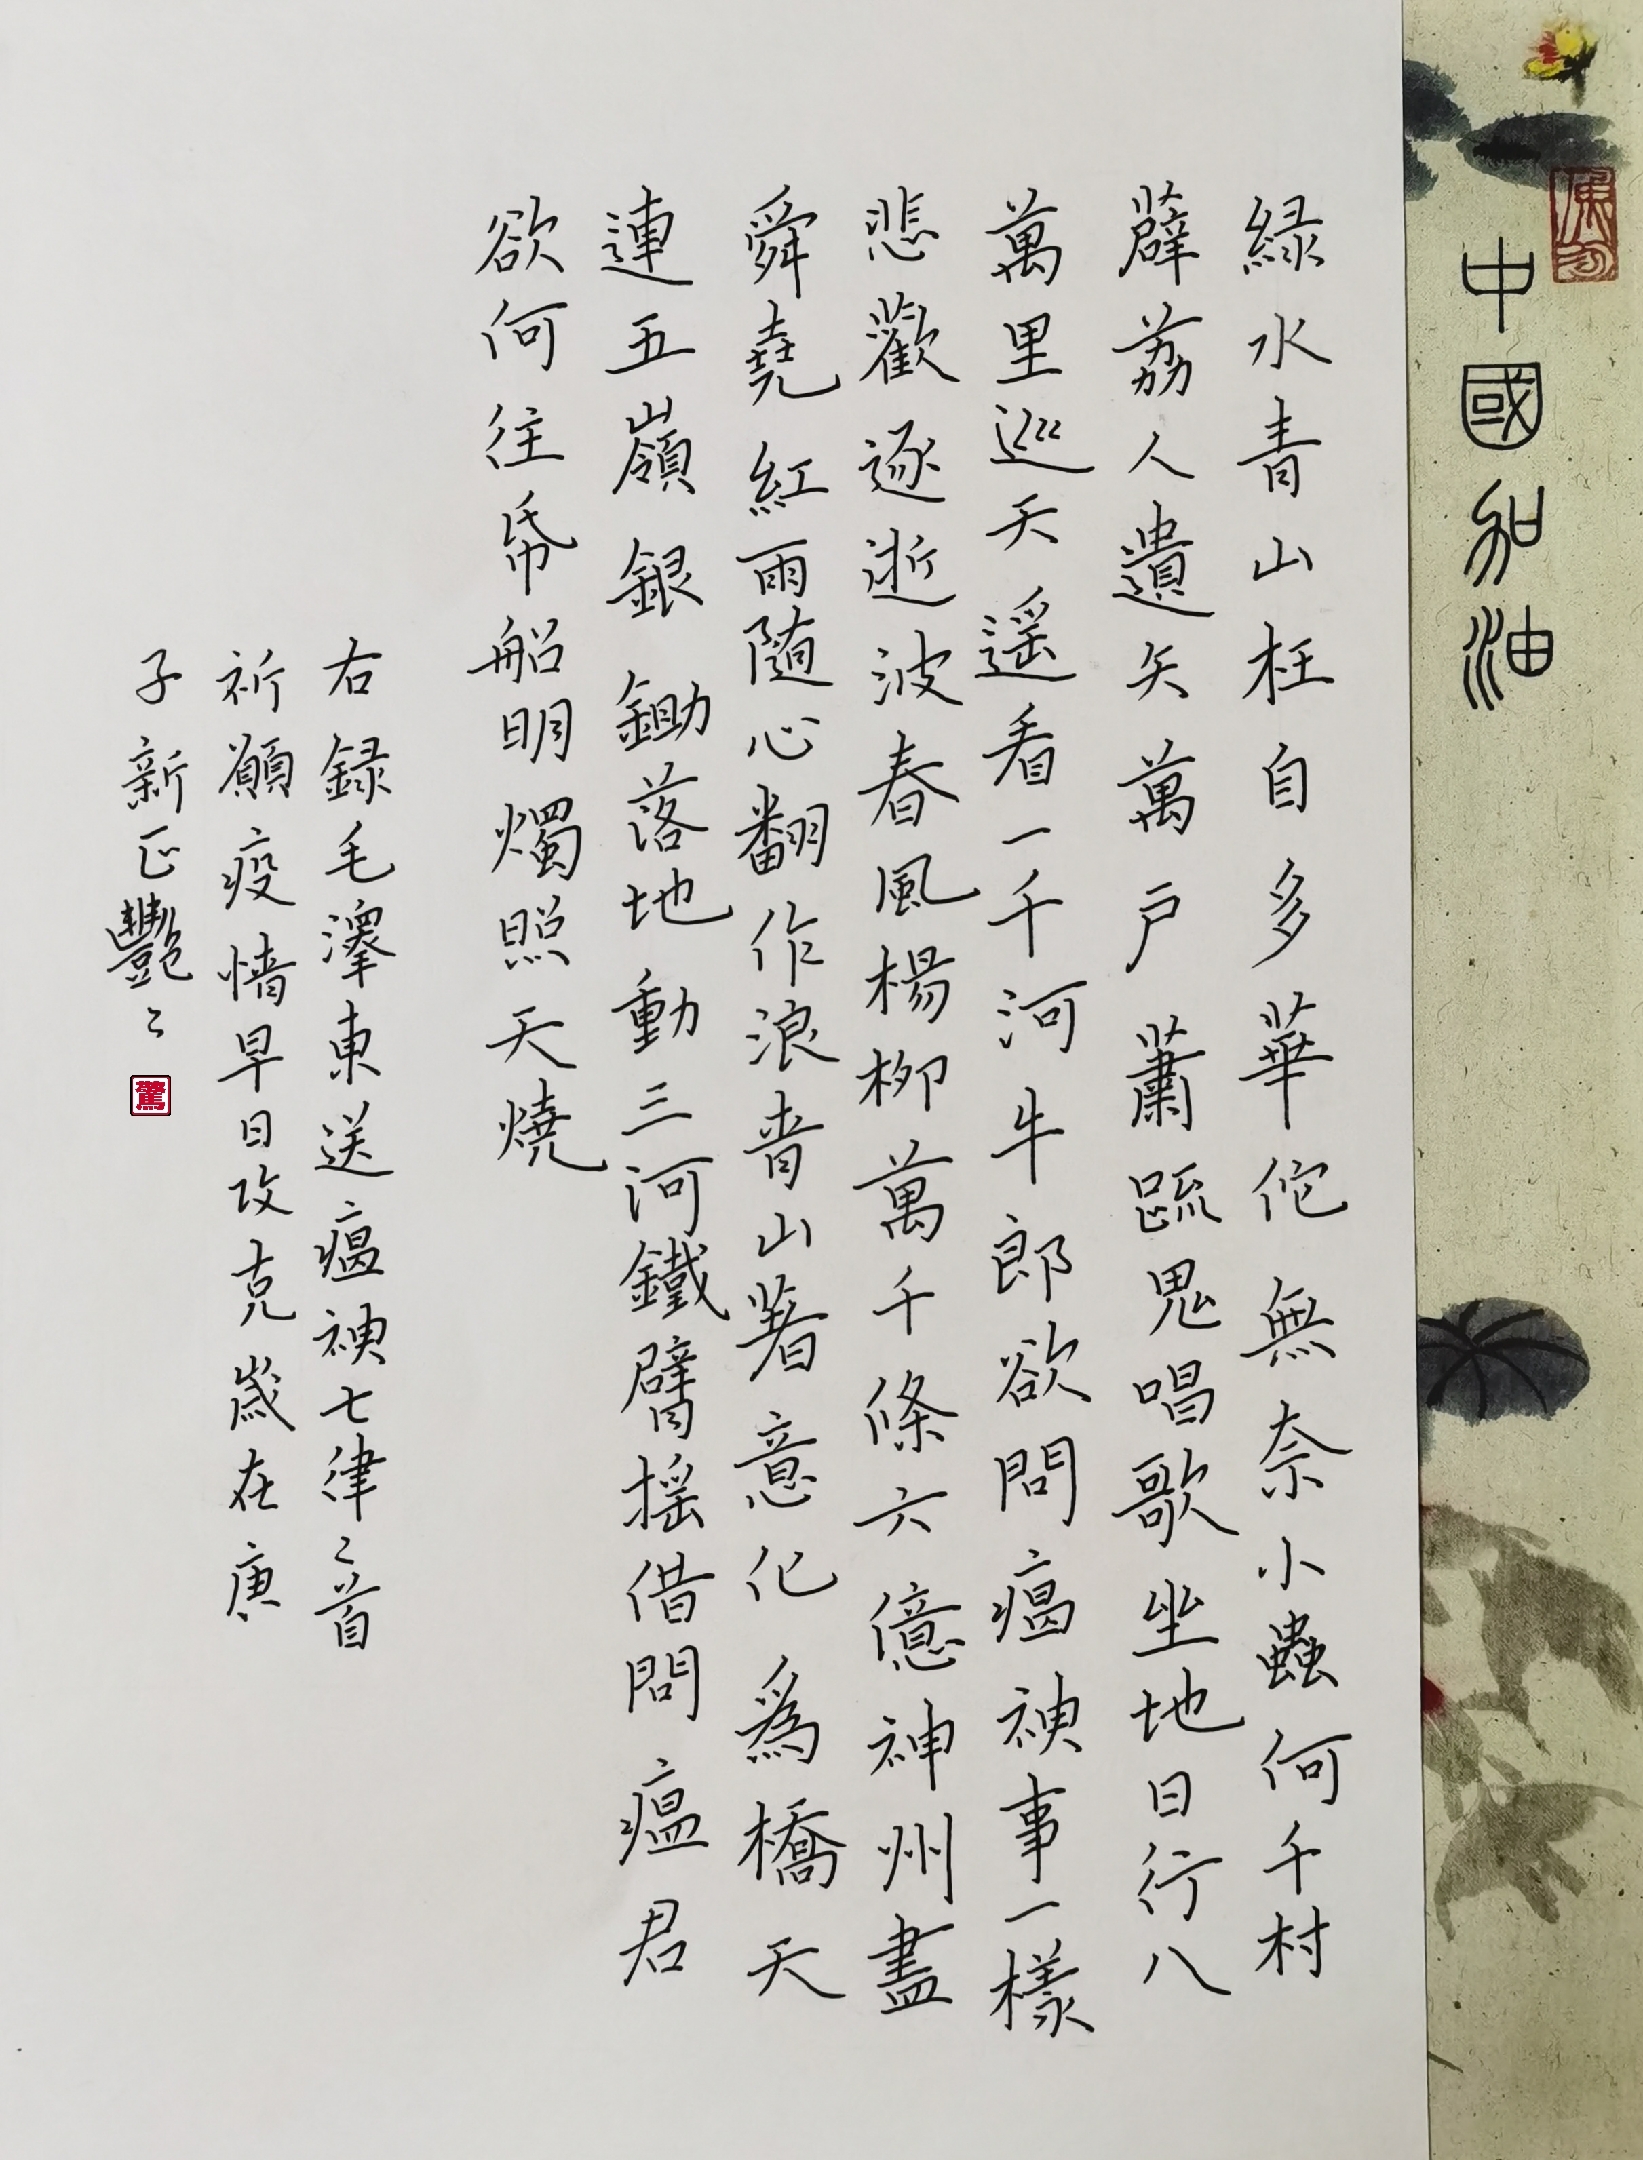 中國加油
緑水青山枉自多華佗無奈小蟲何千村
薜荔人遺矢萬户蕭疏鬼唱歌坐地日行八
萬里巡天遥看一千河牛郎欲問瘟神事一樣
悲歡逐逝波春風楊柳萬千條六億神州盡
舜堯紅雨隨心翻作浪青山著意化爲橋天
連五嶺銀鋤落地動三河鐵臂摇借問瘟君
欲何往紙船明燭照天燒
右録毛澤東送瘟神七律二首
祈願疫情早日攻克歲在庚
子新正豔〻
驚